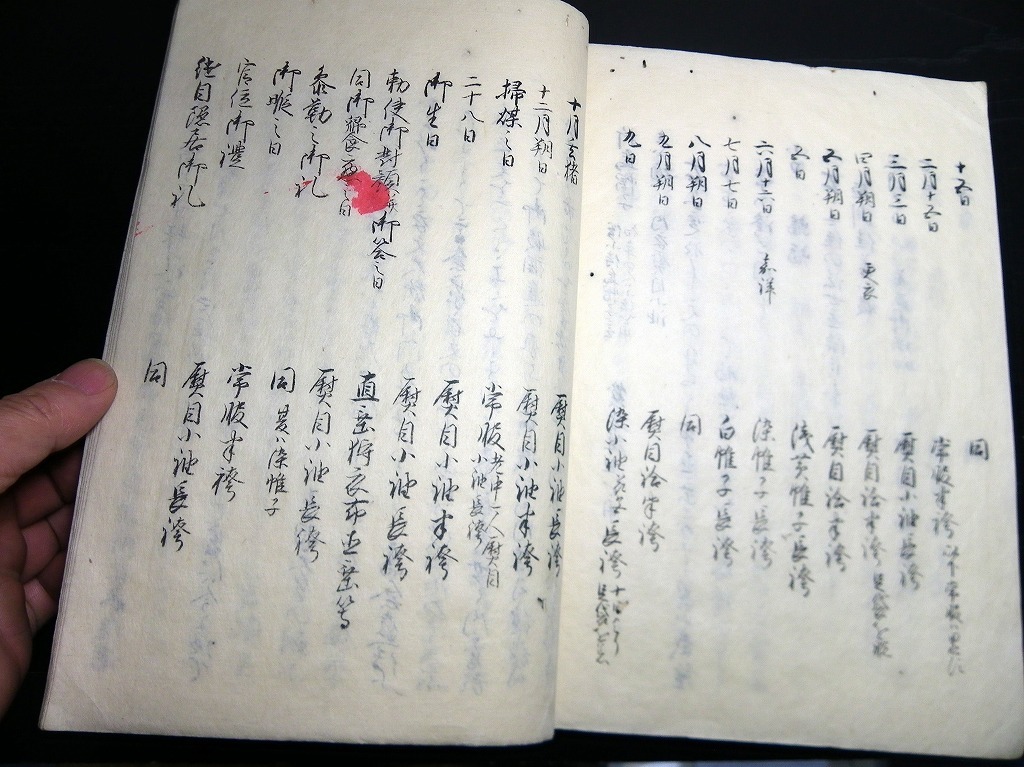 十五日 同
二月十五日 常服半袴
三月三日 熨目小袖長袴
四月朔日 更衣 熨目袷半袴
五月朔日 熨目袷半袴
五日 浅黄帷子長袴
六月十六日 嘉祥 染帷子長袴
七月七日 白帷子長袴
八月朔日 同
九月朔日 熨目袷半袴
九日 染小袖 長袴
十月玄猪 熨目小袖長袴
十二月朔日 熨目小袖半袴
掃煤之日 常服 老中一人熨目小袖長袴
二十八日 熨目小袖半袴
御生日 熨目小袖長袴
勅使御対顔 御答之日 直垂狩衣布直垂等
同御饗応之日 熨目小袖長袴
参勤之御礼 同 夏ハ染帷子
御暇之日 常服半袴
官位御礼 熨目小袖長袴
継目隠居御礼 同